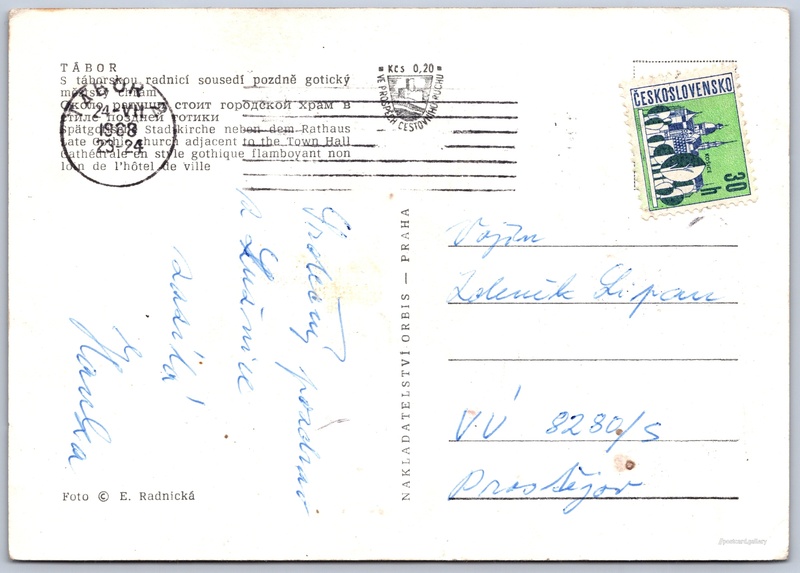 TÁBOR
S táborskou radnicí sousedí pozdně gotický
městský chrám
Около ратуши стоит городской храм в
стиле поздней готики
Spätgotische Stadtkirche neben dem Rathaus
Late Gothic church adjacent to the Town Hall
Cathédrale en style gothique flamboyant non
loin de l'hôtel de ville
TÁBOR 2
24-VII
1968
23-24
Kčs 0,20
VE PROSPĚCH CESTOVNÍHO RUCHU
ČESKOSLOVENSKO
30 h
Srdečný pozdrav
za Lužnice
zasílá
Hanka
NAKLADATELSTVÍ ORBIS — PRAHA
Vojín
Zdeněk Lipan
V.Ú 8280/s
Prostějov
Foto © E. Radnická
@postcard.gallery